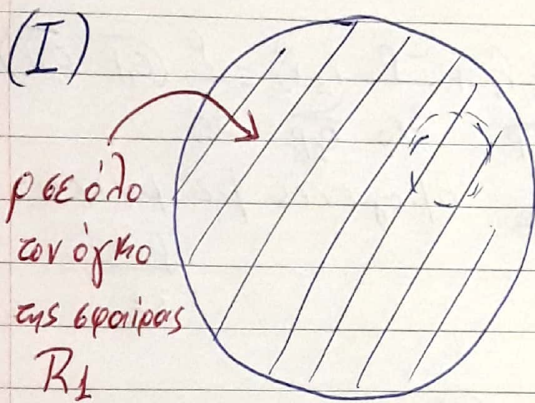 (I)
ρ σε όλο
τον όγκο
της σφαίρας
R1